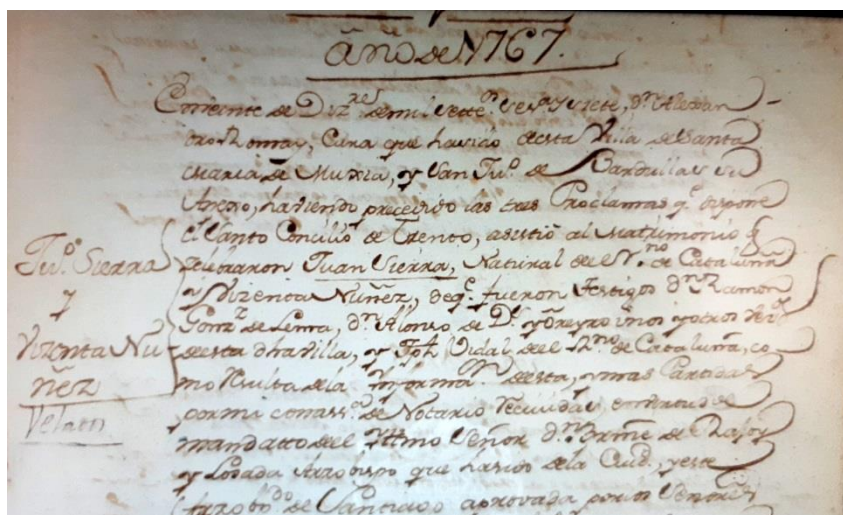 año de 1767.
Corriente de Diz.res de mil Sette.os Ses.ta y siete, D.n Alexan-
dro Romay, Cura que ha sido de esta Villa de Santa
Maria de Muxia, y San Tir.o de Bardullas su
Anexo, haviendo precedido las tres Proclamas q.e dispone
el Santo Concilio de Trento, asistió al Matrimonio q.e
zelebraron Juan Sierra, Natural del R.no de Cataluña
y Vizenta Nuñez, de q.e fueron testigos D.n Ramon
Gonz.z de Lema, D.n Alonso de unos y otros
de esta dha villa, y Jph Vidal del R.no de Cataluña, co-
mo resulta de la Ynforma.on de esta, y mas Partidas
por mi con ass.a de Notario recividas, en virtud de
mandatto del Yltmo Señor D.n Barme de Rajoy
y Losada Arzobispo que ha sido de la Ciud., y este
Arzob.do de Santiago aprovada por los Señores
Ju.o Sierra
y
Vizenta Nu-
ñez
Velaron